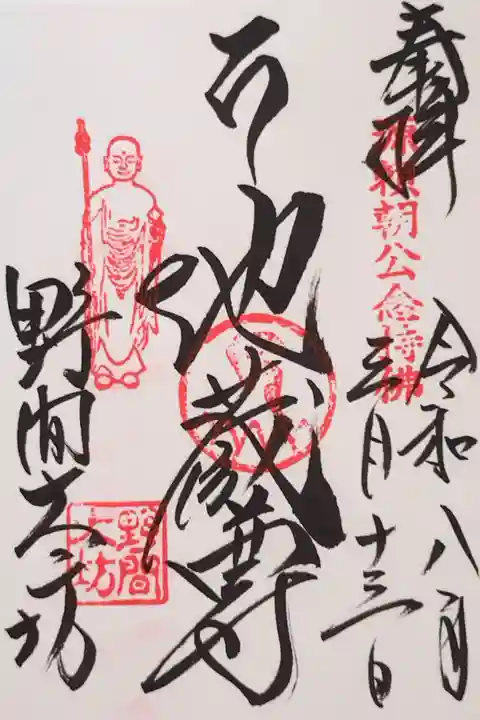 奉拝
源頼朝公念持佛
令和八年
三月十三日
地蔵尊
野間大坊
野間
大坊